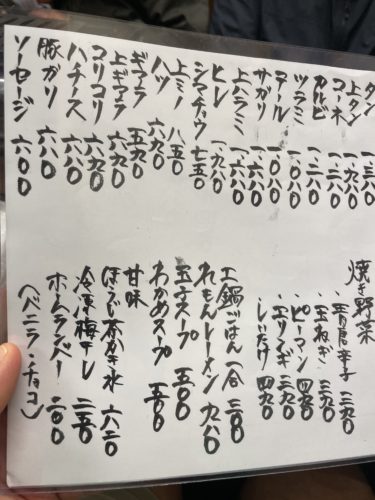 タン
上タン 一、九八〇
コーネ
カルビ
ツラミ 一、〇八〇
サガリ
上ハラミ 一、六八〇
ヒレ 一、九八〇
シマチョウ 七五〇
上ミノ 八五〇
ハツ 六八〇
ギアラ 五九〇
上ギアラ 六九〇
コリコリ 六九〇
ハチノス 六八〇
豚ガリ 六八〇
ソーセージ 六〇〇
焼き野菜
・青唐辛子 三九〇
・玉ねぎ 三九〇
・ピーマン 四九〇
・エリンギ 三九〇
・しいたけ 四九〇
土鍋ごはん 一合 三〇〇
れもんラーメン 九八〇
玉子スープ 五〇〇
わかめスープ 五〇〇
甘味
ほうじ茶かき氷 六二〇
冷凍梅干し 二五〇
ホームランバー 二〇〇
(バニラ・チョコ)